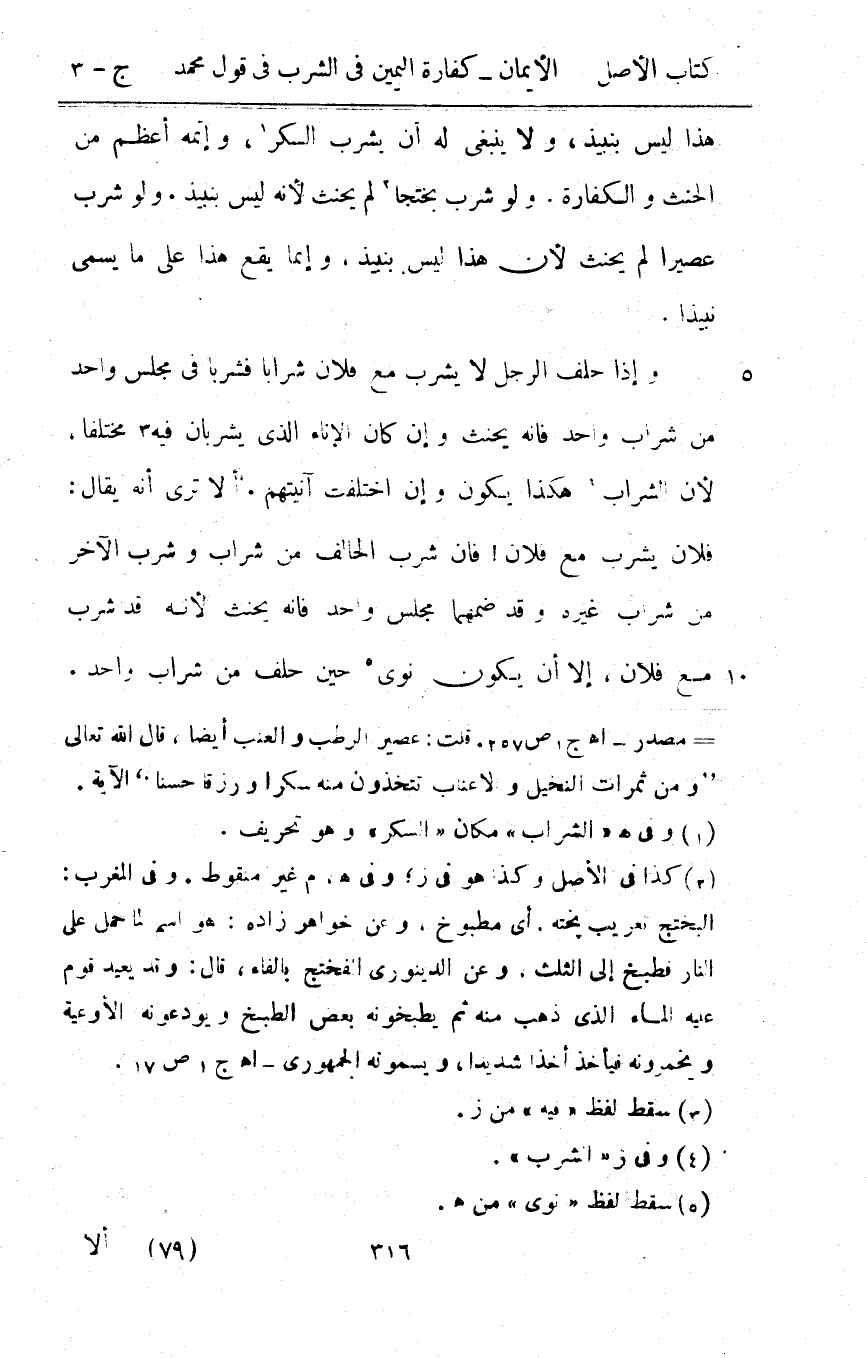 كتاب الأصل الأيمان – كفارة اليمين فى الشرب فى قول محمد ج – ٣
هذا ليس بنبيذ، و لا ينبغى له أن يشرب السكر١، و إثمه أعظم من
الحنث و الكفارة. و لو شرب بختجا٢ لم يحنث لأنه ليس بنبيذ. و لو شرب
عصيرا لم يحنث لأن هذا ليس بنبيذ، و إنما يقع هذا على ما يسمى
نبيذا.
٥ و إذا حلف الرجل لا يشرب مع فلان شرابا فشربا فى مجلس واحد
من شراب واحد فانه يحنث و إن كان الإناء الذى يشربان فيه٣ مختلفا،
لأن الشراب٤ هكذا يكون و إن اختلفت آنيتهم. ألا ترى أنه يقال:
فلان يشرب مع فلان! فان شرب الحالف من شراب و شرب الآخر
من شراب غيره و قد ضمهما مجلس واحد فانه يحنث لأنه قد شرب
١٠ مع فلان، إلا أن يكون نوى٥ حين حلف من شراب واحد.
= مصدر – اھ ج ١ ص ٢٥٧. قلت: عصير الرطب و العنب أيضا، قال الله تعالى
”و من ثمرات النخيل و الاعناب تتخذون منه سكرا و رزقا حسنا“ الآية.
(١) و فى ھ «الشراب» مكان «السكر» و هو تحريف.
(٢) كذا فى الأصل و كذا هو فى ز؛ و فى ھ، م غير منقوط. و فى المغرب:
البختج تعريب پخته. أى مطبوخ، و عن خواهر زاده: هو اسم لما حمل على
النار فطبخ إلى الثلث، و عن الدينورى الفختج بالفاء، قال: و قد يعيد قوم
عليه الماء الذى ذهب منه ثم يطبخونه بعض الطبخ و يودعونه الأوعية
و يخمرونه فيأخذ أخذا شديدا، و يسمونه الجمهورى – اھ ج ١ ص ١٧.
(٣) سقط لفظ «فيه» من ز.
(٤) و فى ز «الشرب».
(٥) سقط لفظ «نوى» من ھ.
٣١٦ (٧٩) ألا